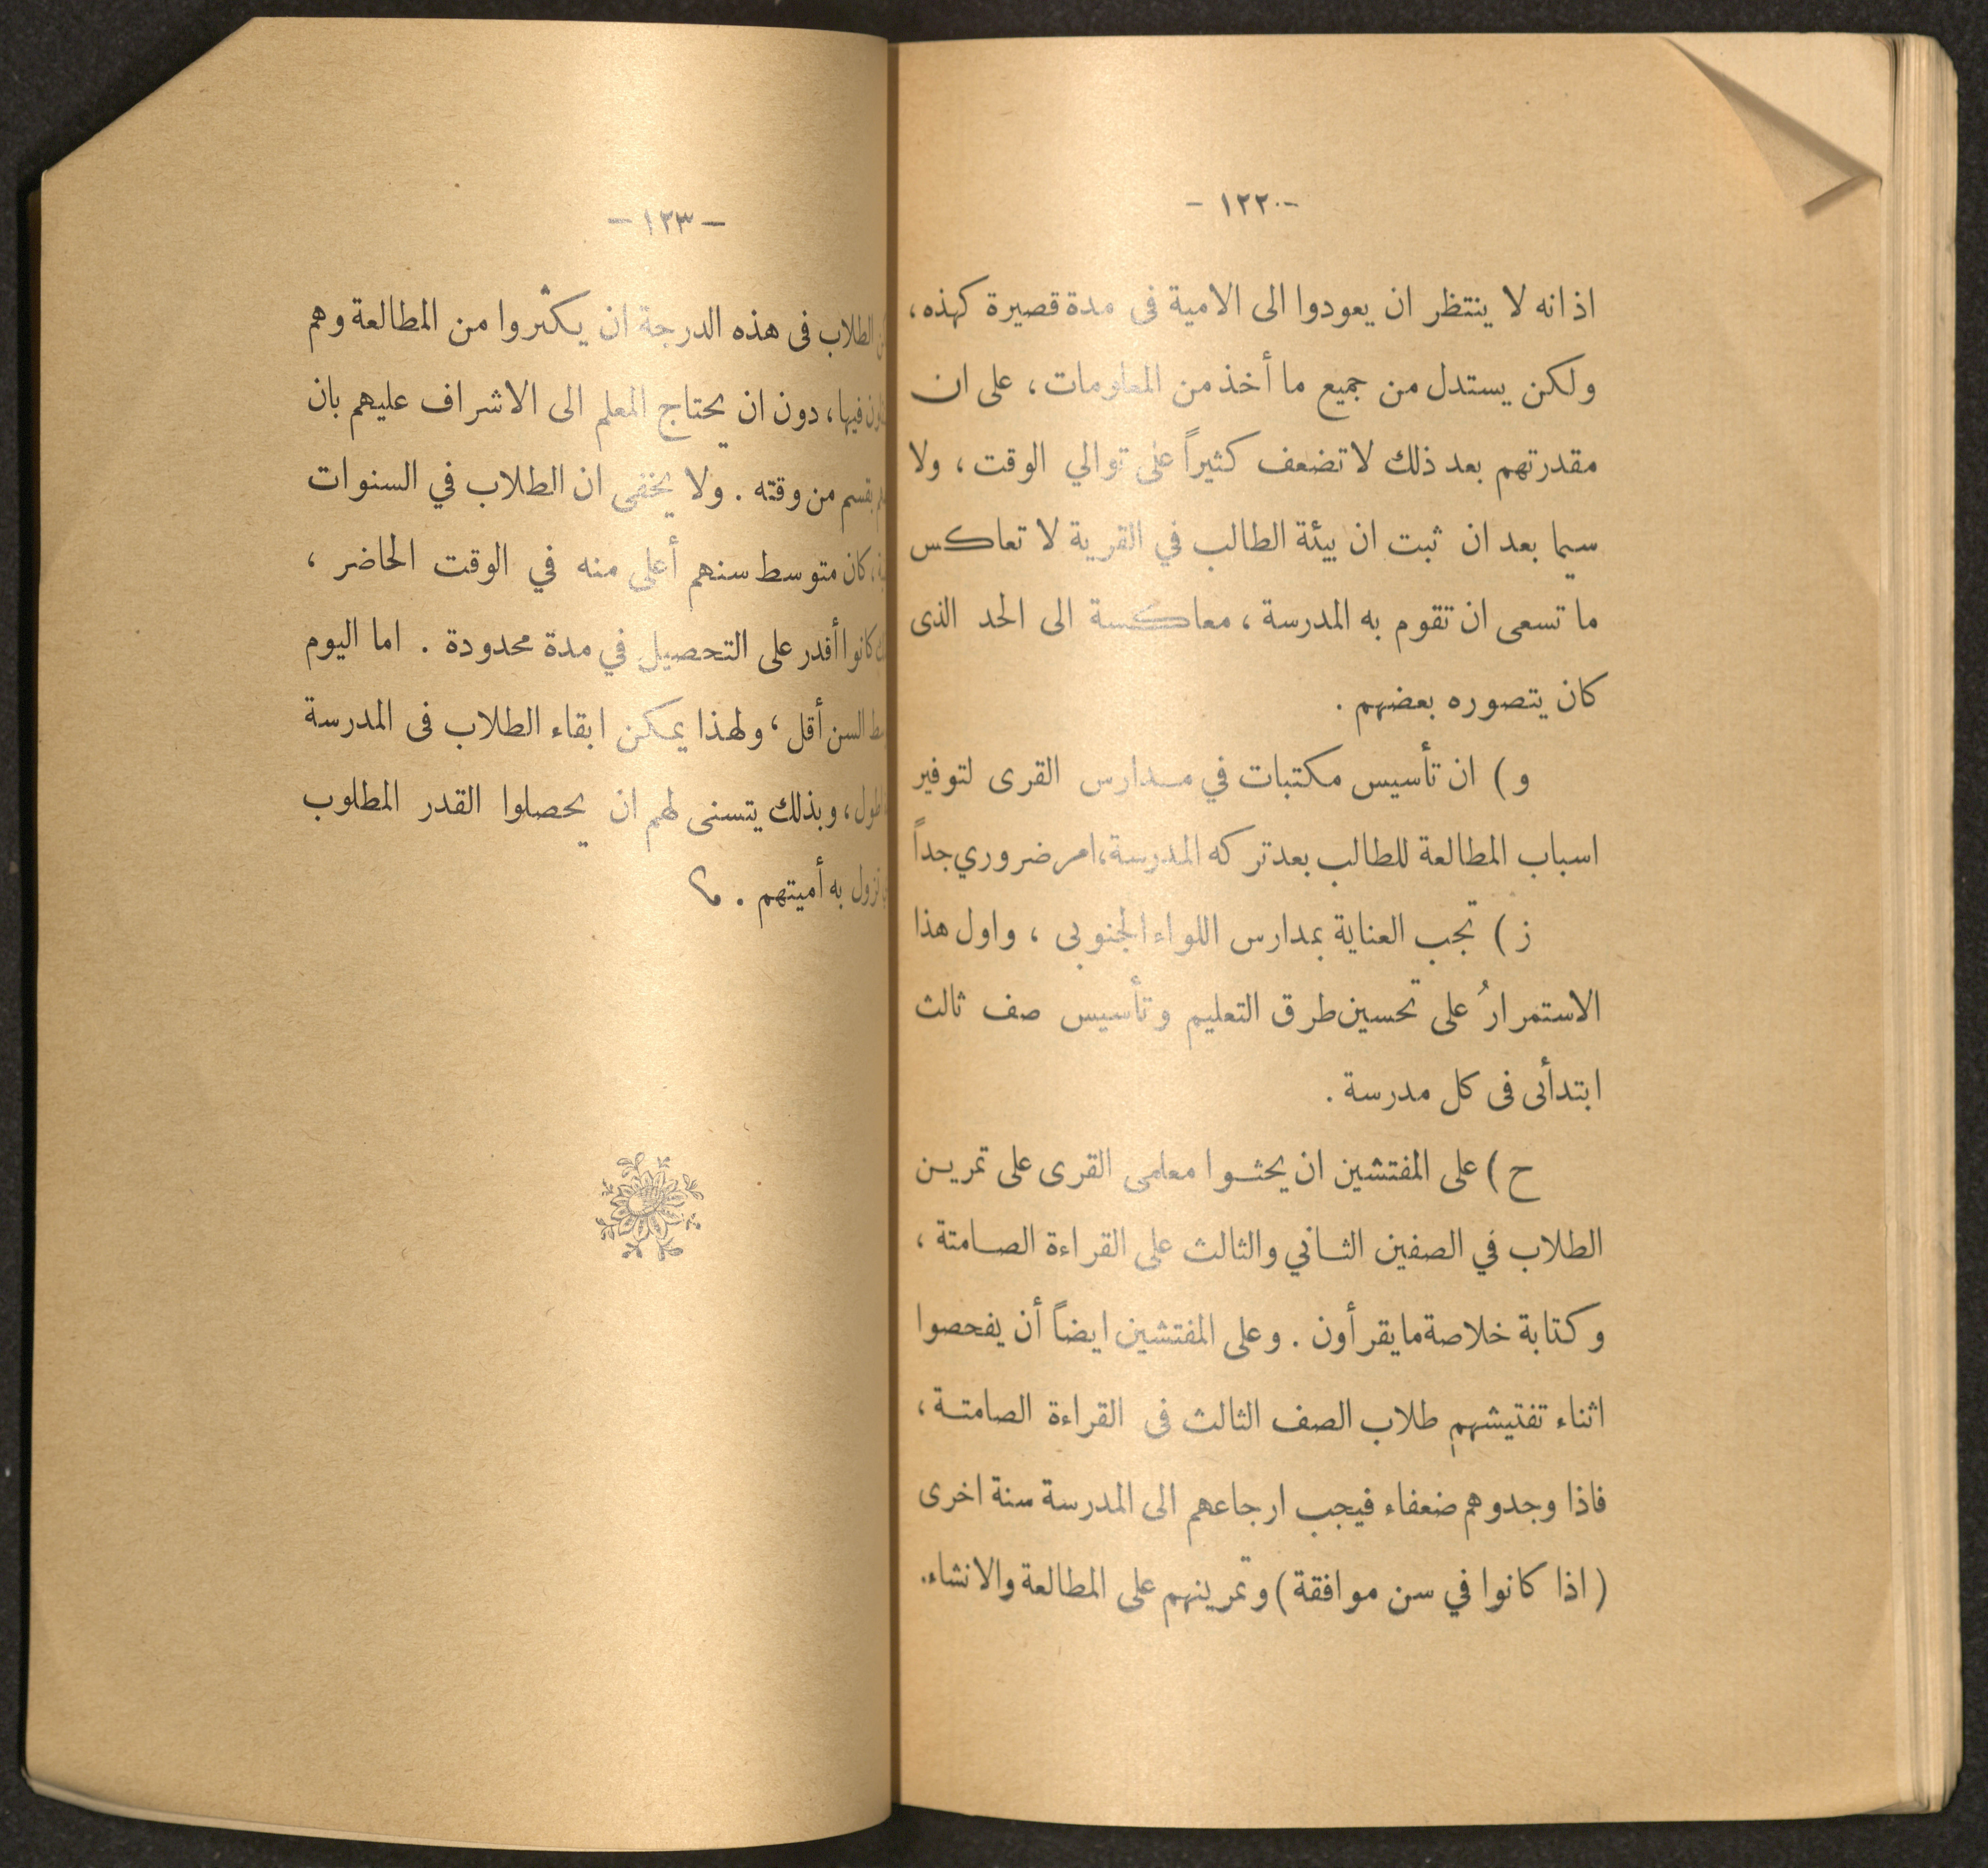 - ١٢٢ -
اذ انه لا ينتظر ان يعودوا الى الامية فى مدة قصيرة كهذه ،
ولكن يستدل من جميع ما أخذ من المعلومات ، على ان
مقدرتهم بعد ذلك لا تضعف كثيراً على توالي الوقت ، ولا
سيما بعد ان ثبت ان بيئة الطالب في القرية لا تعاكس
ما تسعى ان تقوم به المدرسة ، معاكسة الى الحد الذى
كان يتصوره بعضهم .
و ) ان تأسيس مكتبات في مدارس القرى لتوفير
اسباب المطالعة للطالب بعد تركه المدرسة ، امر ضروري جداً
ز ) تجب العناية بمدارس اللواء الجنوبى ، واول هذا
الاستمرارُ على تحسين طرق التعليم وتأسيس صف ثالث
ابتدأنى فى كل مدرسة .
ح ) على المفتشين ان يحثوا معلمى القرى على تمرين
الطلاب في الصفين الثاني والثالث على القراءة الصامتة ،
وكتابة خلاصة ما يقرأون . وعلى المفتشين ايضاً أن يفحصوا
اثناء تفتيشهم طلاب الصف الثالث فى القراءة الصامتة ،
فاذا وجدوهم ضعفاء فيجب ارجاعهم الى المدرسة سنة اخرى
( اذا كانوا في سن موافقة ) وتمرينهم على المطالعة والانشاء .
- ١٢٣ -
الطلاب فى هذه الدرجة ان يكثروا من المطالعة وهم
فيها ، دون ان يحتاج المعلم الى الاشراف عليهم بان
بقسم من وقته . ولا يخفى ان الطلاب في السنوات
كان متوسط سنهم أعلى منه في الوقت الحاضر ،
كانوا أقدر على التحصيل في مدة محدودة . اما اليوم
السن أقل ، ولهذا يمكن ابقاء الطلاب فى المدرسة
اطول ، وبذلك يتسنى لهم ان يحصلوا القدر المطلوب
تزول به أميتهم .